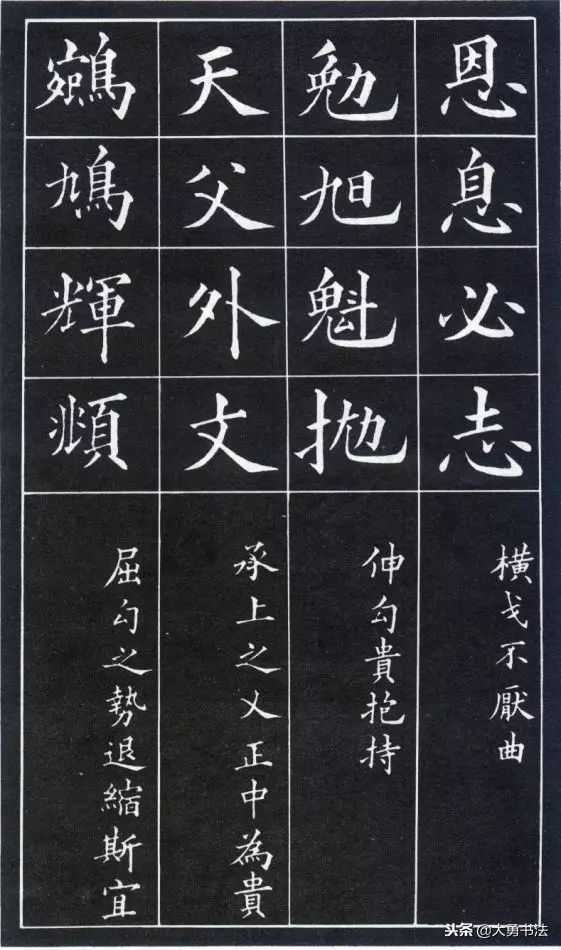 恩息必志
橫戈不厭曲
勉旭魁抛
伸勾貴抱持
天父外丈
承上之乂正中為貴
鵷鳩輝頫
屈勾之勢退縮斯宜
头条@大勇书法